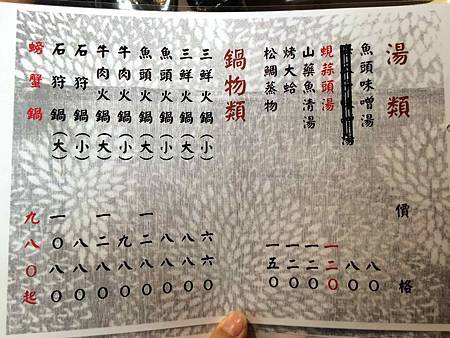 湯類 價格
魚頭味噌湯 八〇
湯 八〇
蜆蒜頭湯 一二〇
山藥魚清湯 一二〇
烤大蛤 一二〇
松鯛蒸物 一五〇
鍋物類
三鮮火鍋(小) 六六〇
三鮮火鍋(大) 八八〇
魚頭火鍋(小) 八八〇
魚頭火鍋(大) 一二八〇
牛肉火鍋(小) 九八〇
牛肉火鍋(大) 一二八〇
石狩鍋(小) 八八〇
石狩鍋(大) 一〇八〇
螃蟹鍋 九八〇起